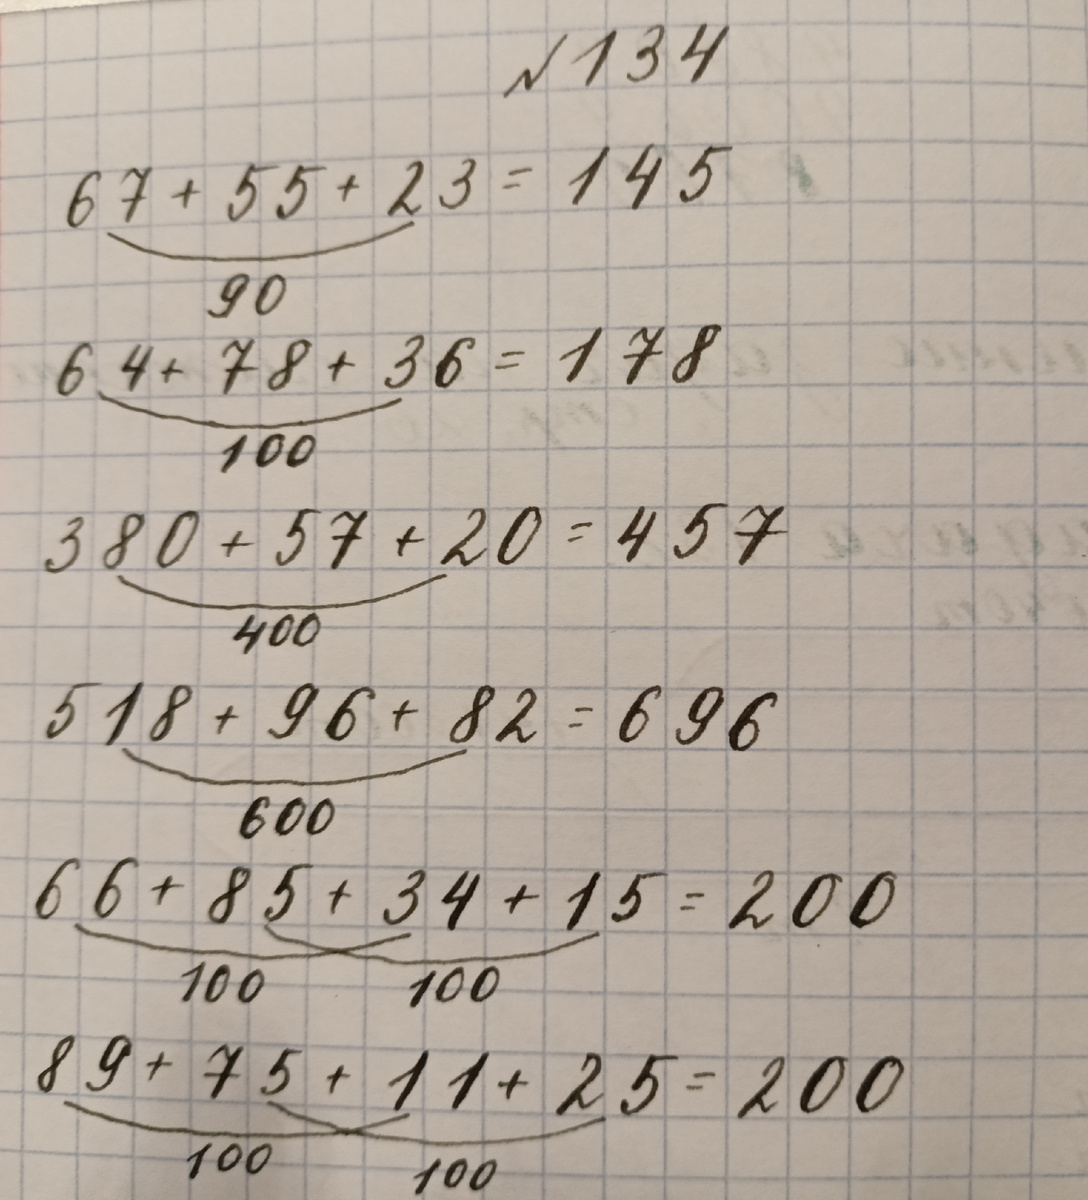 №134
67 + 55 + 23 = 145
90
64 + 78 + 36 = 178
100
380 + 57 + 20 = 457
400
518 + 96 + 82 = 696
600
66 + 85 + 34 + 15 = 200
100 100
89 + 75 + 11 + 25 = 200
100 100